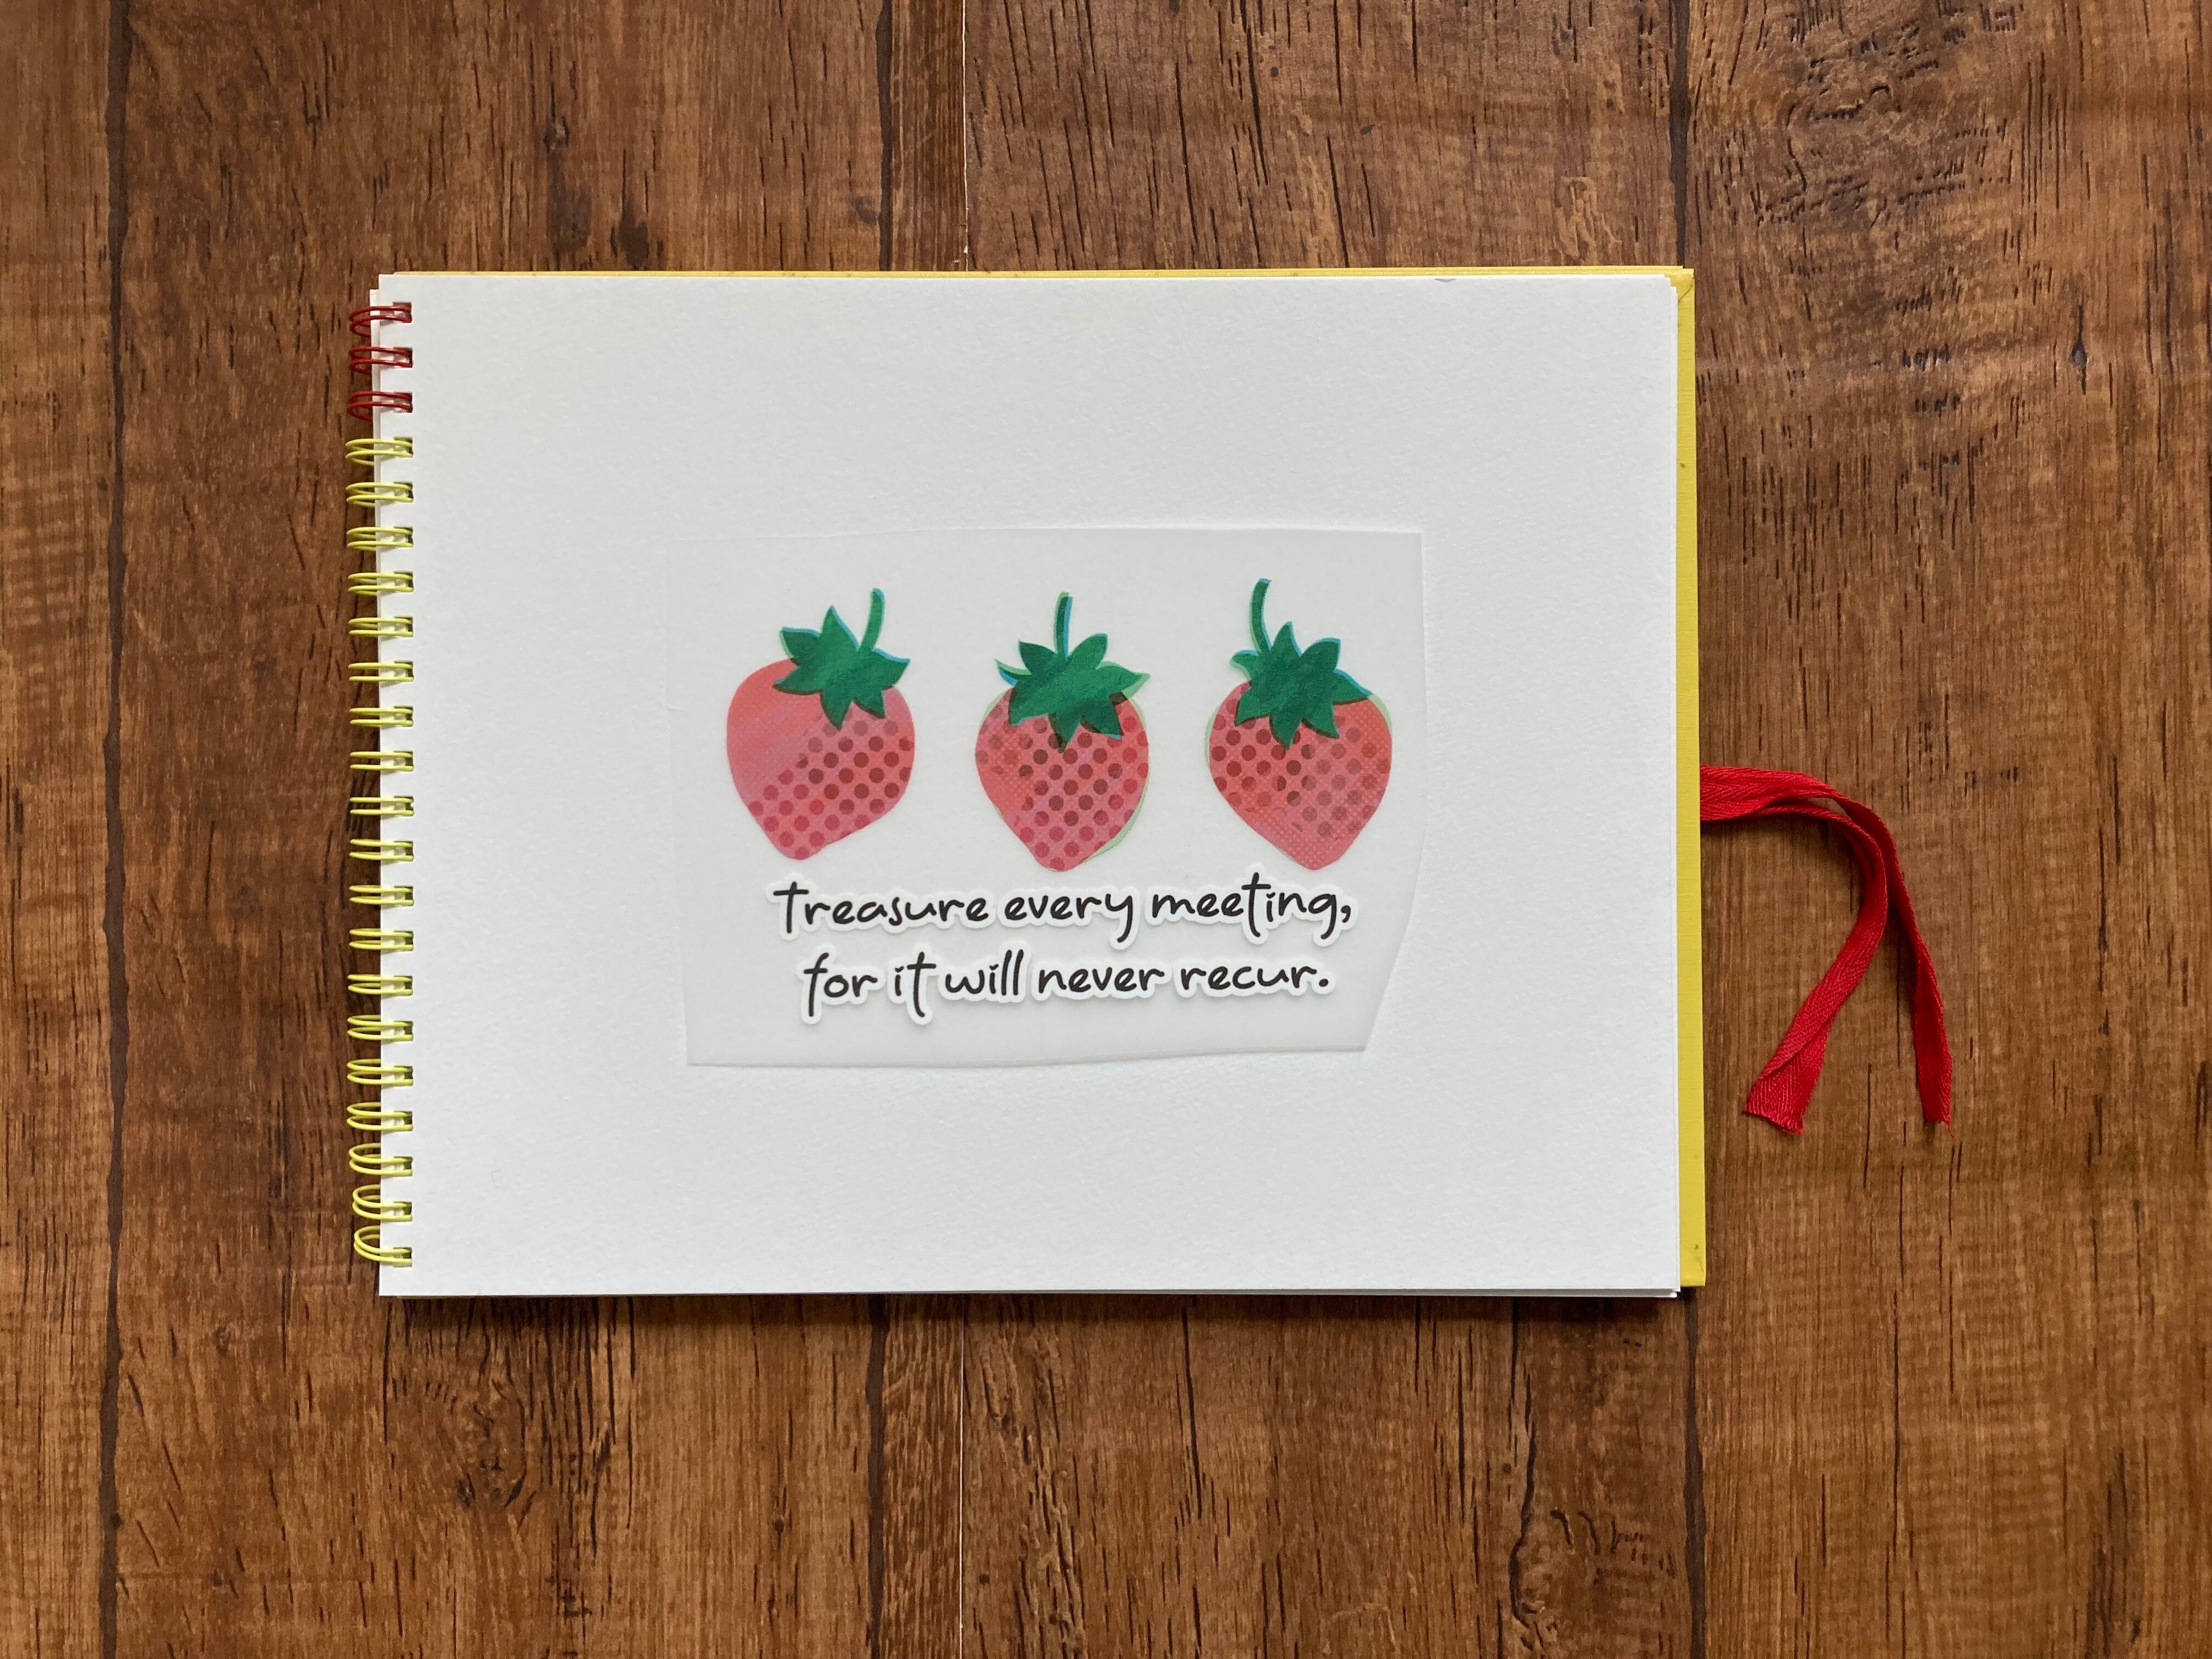 Treasure every meeting,
for it will never recur.